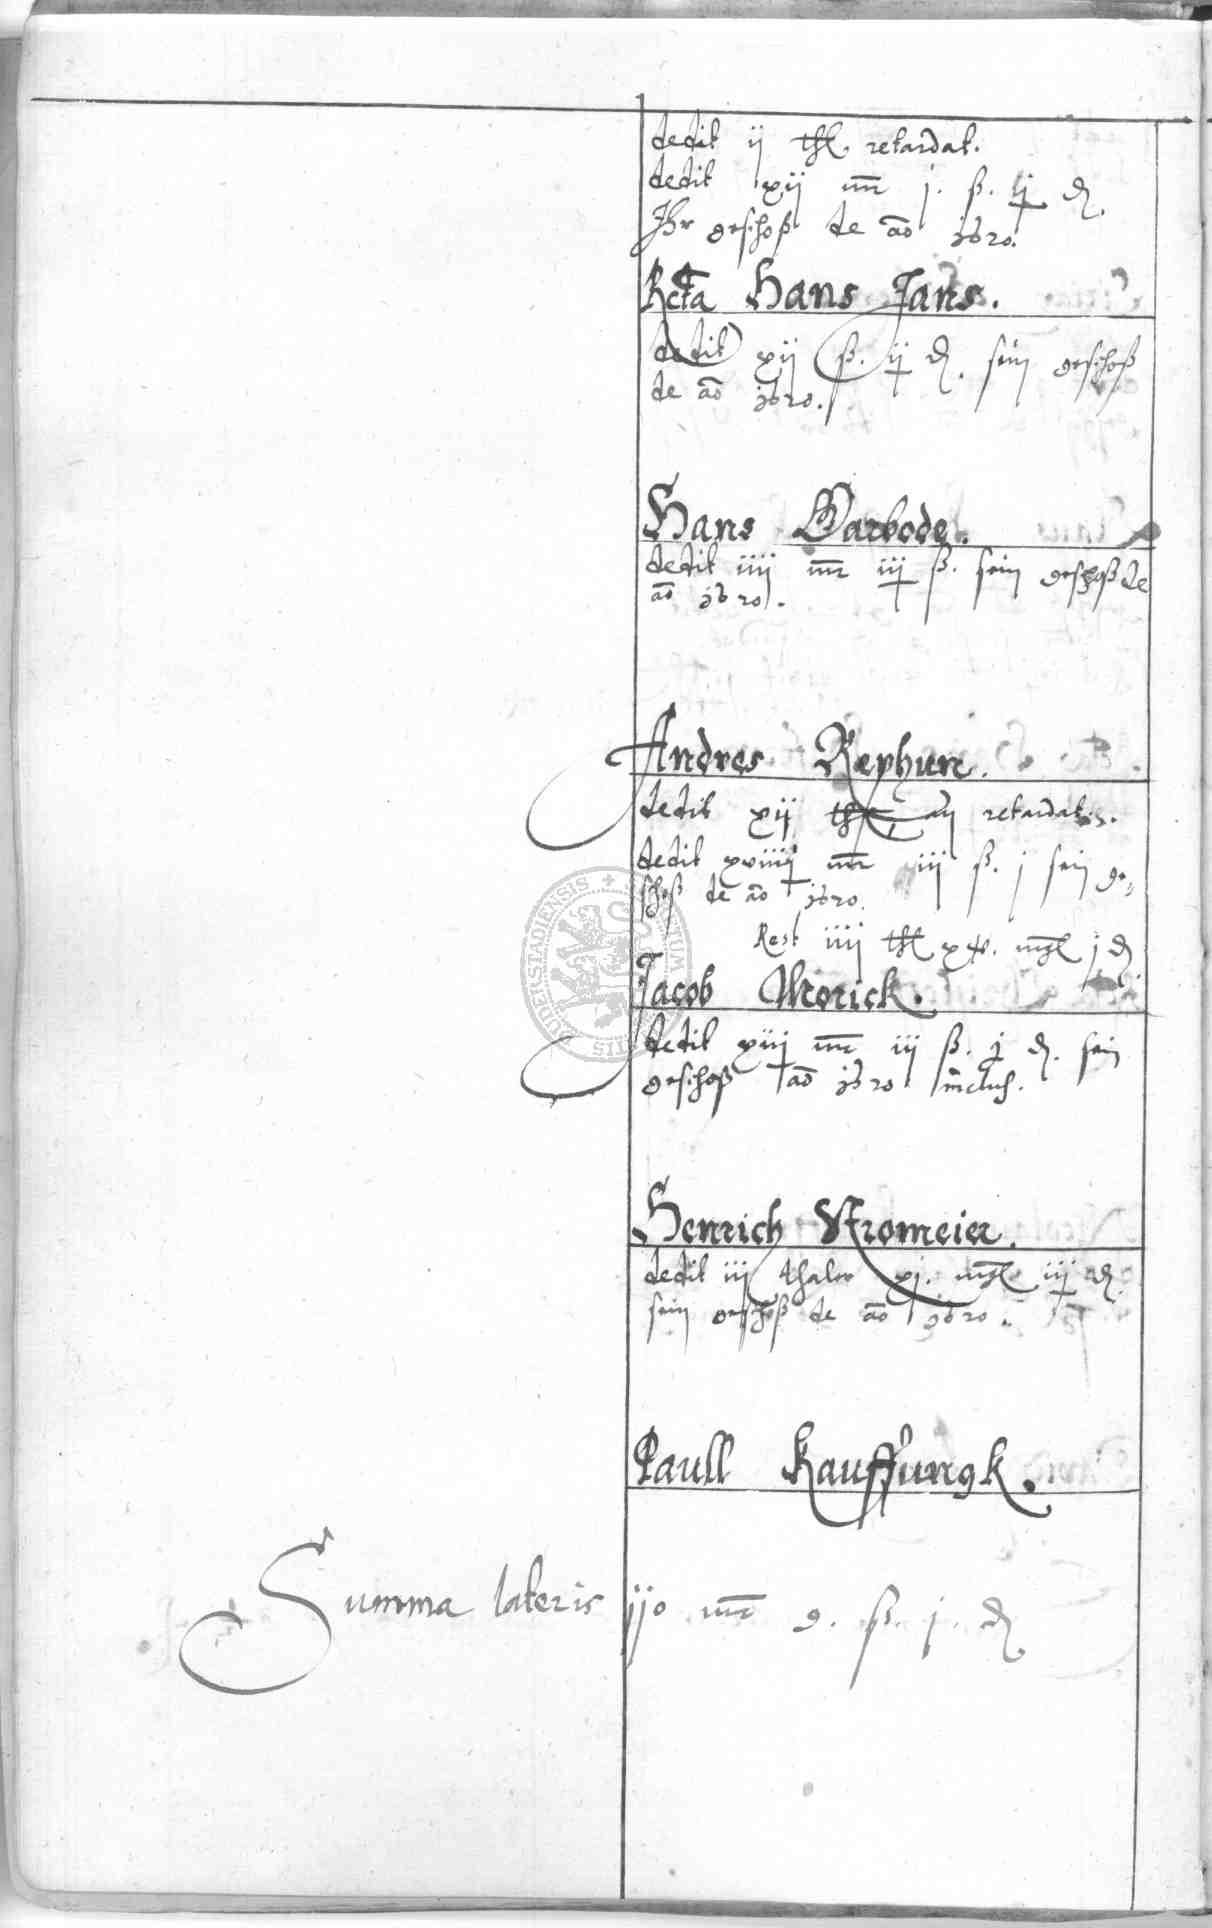 dedit ij thl. retardat.
dedit xij mr j. ß. ij d.
Ihr geschoß de ao 1620.
Rcta Hans Jans.
dedit xij ß. ij d. sein geschoß
de ao 1620.
Hans Garbode.
dedit iiij mr iij ß. sein geschoß de
ao 1620.
Andres Rephun.
dedit xij thl an retardat.
dedit xviiij mr iij ß. j sein ge-
schoß de ao 1620.
Rest iiij thl xv. mgl j d
Jacob Morick.
dedit xiij mr iij ß. j d. sein
geschoß ao 1620 inclus.
Henrich Stromeier.
dedit iij thaler xj. mgl iij d.
sein geschoß de ao 1620.
Paull Kauffungk.
Summa lateris 110 mr 9. ß. j. d